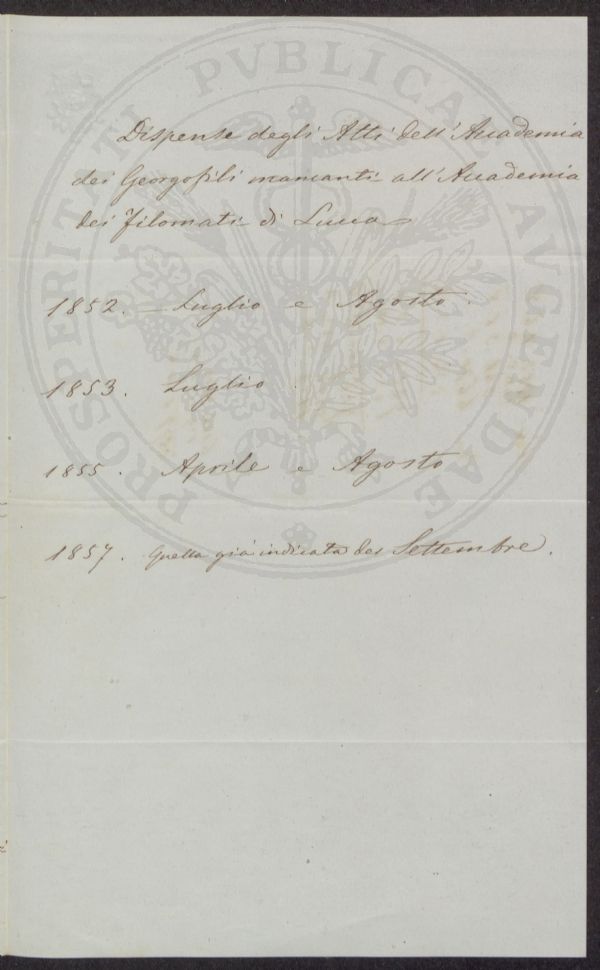 Dispense degli Atti dell'Accademia
dei Georgofili mancanti all'Accademia
dei Filomati di Lucca
1852. — Luglio e Agosto.
1853. Luglio.
1855. Aprile e Agosto
1857. Quella già indicata del Settembre.
PROSPERITATI PVBLICAE AVGENDAE